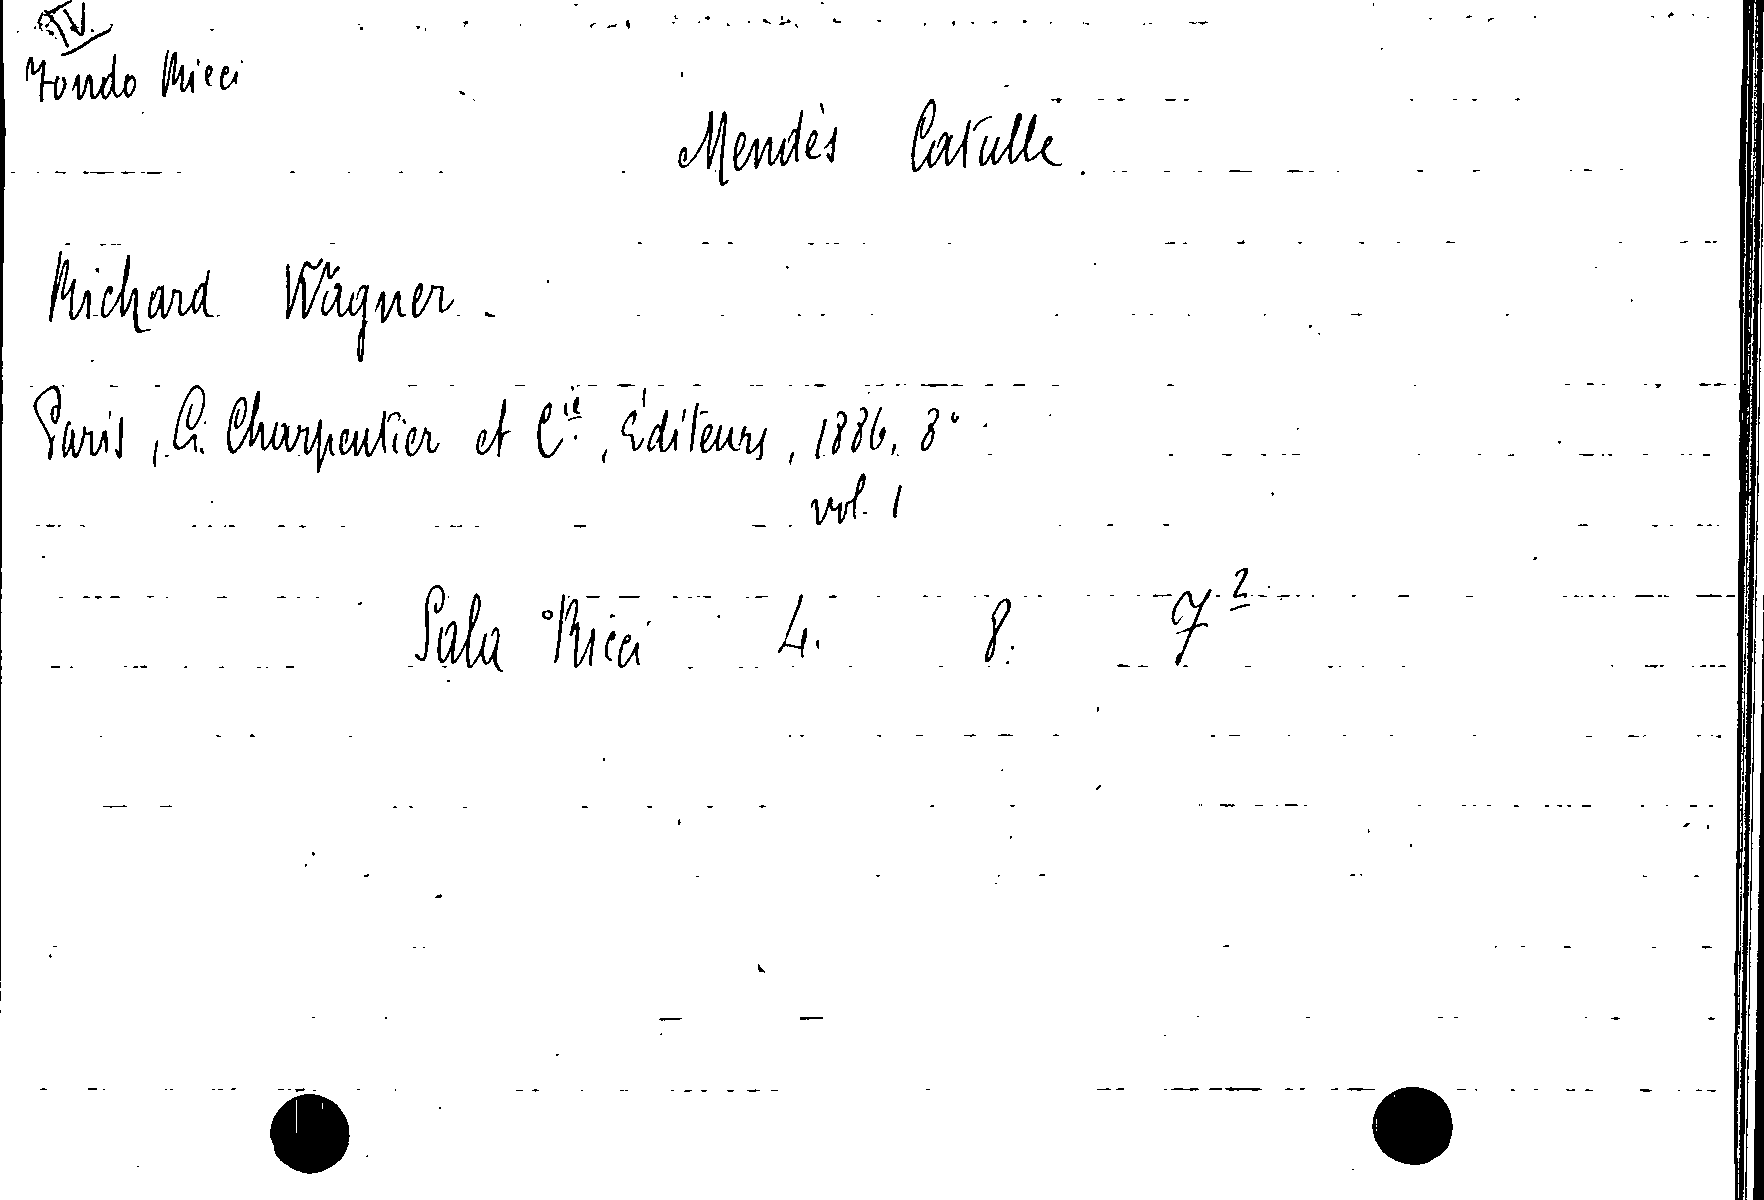 IV.
Fondo Ricci
Mendès Catulle.
Richard Wagner.
Paris, G. Charpentier et C.ie, Éditeurs, 1886. 8°
vol. 1
Sala Ricci 4. 8. 7²